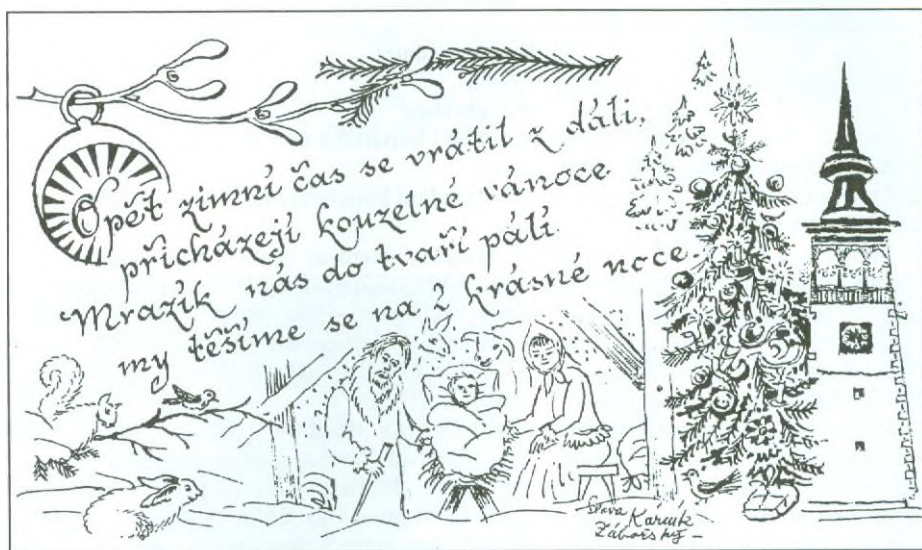 Opět zimní čas se vrátil z dáli,
přicházejí kouzelné vánoce.
Mrazík nás do tvaří pálí
my těšíme se na 2 krásné noce.
Záborský